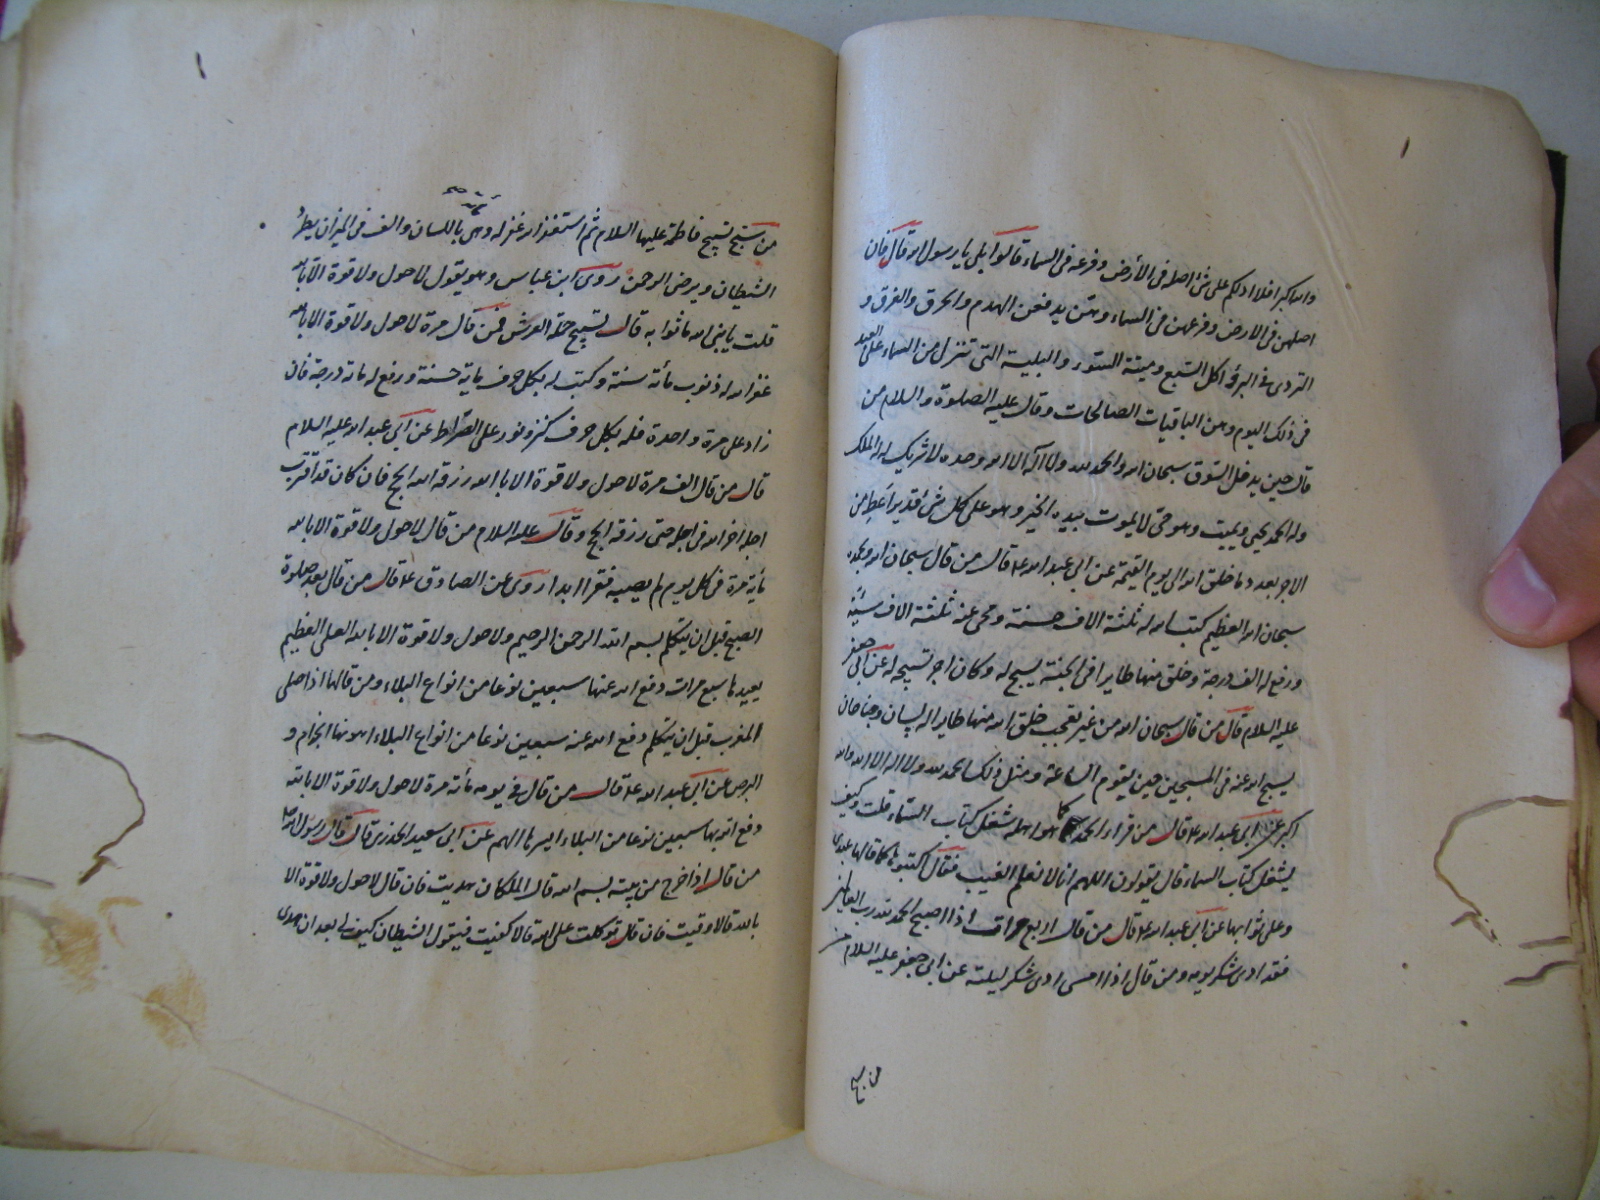 والله اكبر افلا ادلكم على شئ اصله في الأرض وفرعه في السماء قالوا بلى يا رسول الله قال فان
اصلهن في الارض وفرعهن في السماء وهن يدفعن الهدم والحرق والغرق و
التردى في البئر واكل السبع وميتة السوء والبلية التى تنزل من السماء على العبد
في ذلك اليوم وهن الباقيات الصالحات وقال عليه الصلوة والسلام من
قال حين يدخل السوق سبحان الله والحمد لله ولا اله الا الله وحده لا شريك له له الملك
وله الحمد يحيى ويميت وهو حى لا يموت بيده الخير وهو على كل شئ قدير اعطى من
الاجر بعدد ما خلق الله الى يوم القيمة عن ابى عبد الله ع قال من قال سبحان الله وبحمده
سبحان الله العظيم كتب الله له ثلثة الاف حسنة ومحى عنه ثلثة الاف سيئة
ورفع له الف درجة وخلق منها طايرا فى الجنة يسبح له وكان اجر تسبيحه له عن ابى جعفر
عليه السلام قال من قال سبحان الله من غير تعجب خلق الله منها طايرا له لسان وجناحان
يسبح الله عنه فى المسبحين حين يقوم الساعة ومثل ذلك الحمد لله ولا اله الا الله والله
اكبر عن ابى عبد الله ع قال من قرا الحمد لله كما هو اهله شغل كتاب السماء قلت وكيف
يشغل كتاب السماء قال يقولون اللهم انا لا نعلم الغيب فقال اكتبوها كما قالها عبدى
وعلى ثوابها عن ابى عبد الله ع قال من قال اربع مرات اذا اصبح الحمد لله رب العالمين
فقد ادى شكر يومه ومن قال اذا امسى ادى شكر ليلته عن ابى جعفر عليه السلام
من سبح
من سبح تسبيح فاطمة عليها السلام ثم استغفر الله غفر له وهى باللسان والف فى الميزان يطرد
الشيطان ويرضى الرحمن روى ابن عباس وهو يقول لا حول ولا قوة الا بالله
قلت يا نبى الله ما ثوابه قال تسبيح حملة العرش فمن قال مرة لا حول ولا قوة الا بالله
غفر الله له ذنوب مأئة سنة وكتب له بكل حرف ماية حسنة ورفع له مائة درجة فان
زاد على مرة واحدة فله بكل حرف كنز ونور على الصراط عن ابى عبد الله عليه السلام
قال من قال الف مرة لا حول ولا قوة الا بالله رزقه الله الحج فان كان قد اقترب
اجله اخر الله فى اجله حتى رزقه الحج وقال عليه السلام من قال لا حول ولا قوة الا بالله
مأية مرة فى كل يوم لم يصيبه فقر ابدا روى عن الصادق ع قال من قال بعد صلوة
الصبح قبل ان يتكلم بسم الله الرحمن الرحيم ولا حول ولا قوة الا بالله العلى العظيم
يعيدها سبع مرات دفع الله عنها سبعين نوعا من انواع البلاء ومن قالها اذا صلى
المغرب قبل ان يتكلم دفع الله عنه سبعين نوعا من انواع البلاء اهونها الجذام و
البرص عن ابى عبد الله ع قال من قال فى يومه مأئة مرة لا حول ولا قوة الا بالله
دفع الله بها سبعين نوعا من البلاء ايسرها الهم عن ابى سعيد الخدرى قال قال رسول الله ص
من قال اذا خرج من بيته بسم الله قال الملكان هديت فان قال لا حول ولا قوة الا
بالله قالا وقيت فان قال توكلت على الله قالا كفيت فيقول الشيطان كيف لى بعد ان هدى